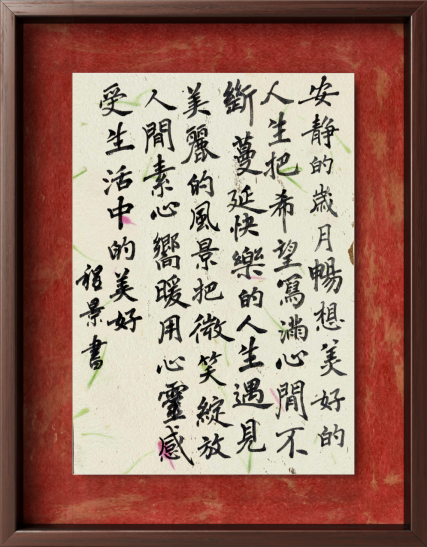 安靜的歲月暢想美好的
人生把希望寫滿心間不
斷蔓延快樂的人生遇見
美麗的風景把微笑綻放
人間素心嚮暖用心靈感
受生活中的美好
程景書